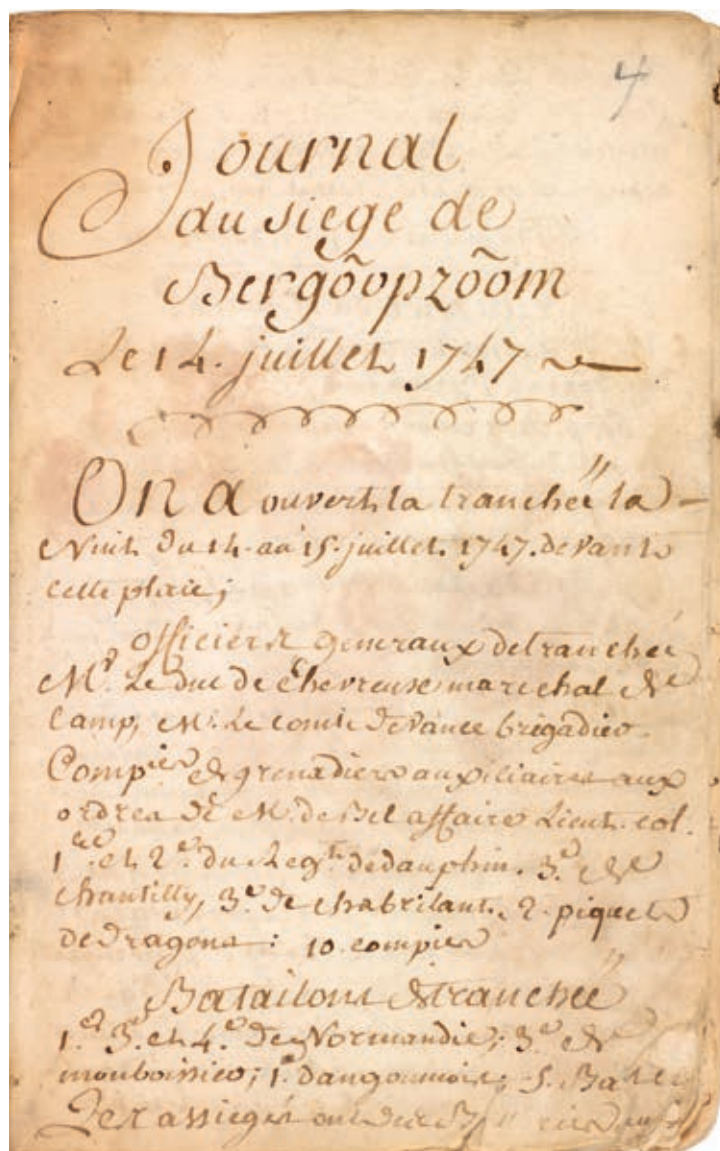 4
Journal
du siege de
Bergõopzõom
Le 14. juillet 1747
On a ouvert la tranchéé la
Nuit du 14. au 15. juillet. 1747. devant
cette place;
officiers generaux de tranchéé
Mr. Le duc de Chevreuse marechal de
Camp, M. Le comte de Vance brigadier.
Compies de grenadiers auxiliaires aux
ordres de M. de Bel affaire Lieut. col.
1ere et 2e. du Regt. de dauphin. 3e. de
chantilly, 3e. de chabrilant. 2. piquets
de dragons: 10. compies
Batailons de tranchéé
1.er 3e. et 4e. de Normandie; 3e. de
monboissier; 1er dangoumois; 5. Bat
Les assiegés ont